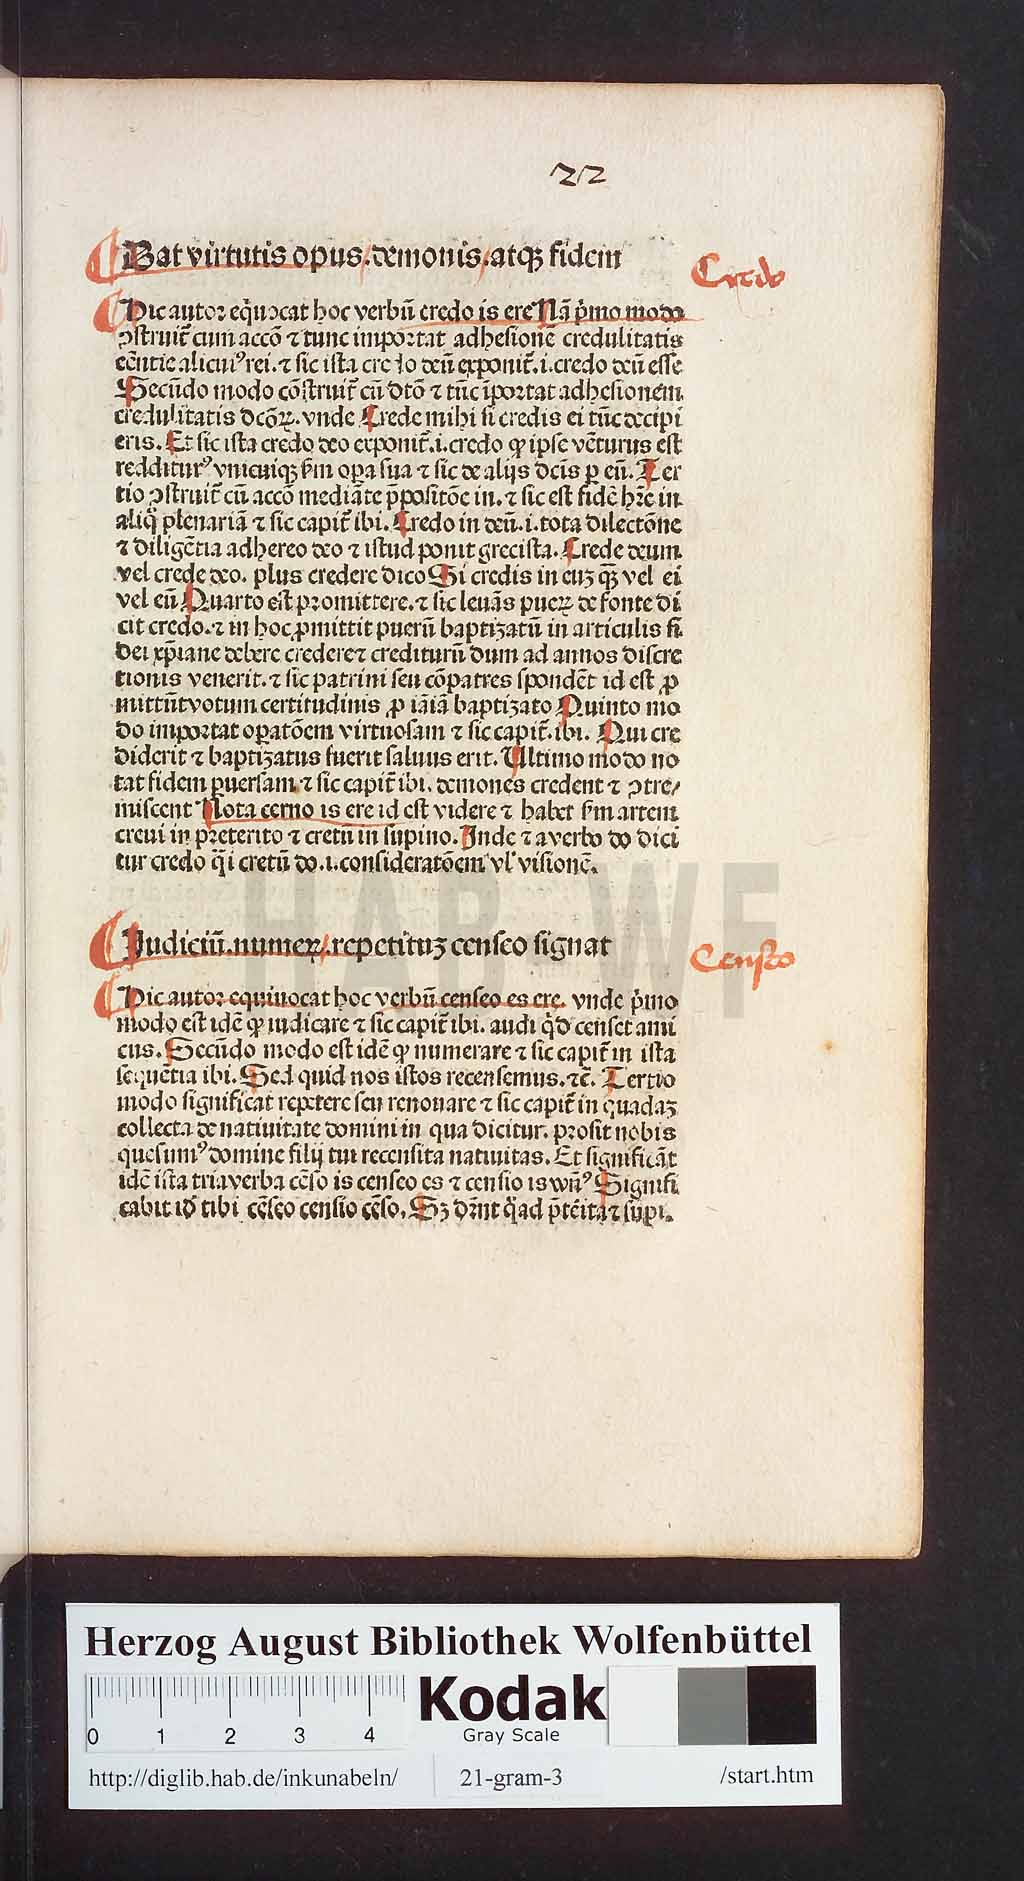 22
Bat virtutis opus. demonis. atqꝫ fidem
Credo
Hic autor eq̇uocat hoc verbū credo is ere Nā pͥmo modo
ꝯstruit᷑ cum accō ⁊ tunc importat adhesionē credulitatis
eēntie alicuiꝰ rei. ⁊ sic ista credo deū exponit᷑ .i. credo deū esse
Secūdo modo cōstruit᷑ cū dtō ⁊ tūc īportat adhesionem
credulitatis dcōꝝ. vnde Crede mihi si credis ei tūc decipi
eris. Et sic ista credo deo exponit᷑ .i. credo ꝙ ipse vēturus est
redditurꝰ vnicuiqꝫ s̄m oꝑa sua ⁊ sic de alijs dcīs ꝑ eū. Ter
tio ꝯstruit᷑ cū accō mediāte p̄positōe in. ⁊ sic est fidē hr̄e in
aliq̊ plenariā ⁊ sic capit᷑ ibi. Credo in deū .i. tota dilectōne
⁊ diligētia adhereo deo ⁊ istud ponit grecista. Crede deum
vel crede deo. plus credere dico Si credis in euꝫ q̄ꝫ vel ei
vel eū Quarto est promittere. ⁊ sic leuās pueꝝ de fonte di
cit credo. ⁊ in hoc ꝓmittit puerū baptizatū in articulis fi
dei xp̄iane debere credere ⁊ crediturū dum ad annos discre
tionis venerit. ⁊ sic patrini seu cōpatres spondēt id est ꝓ
mittūt votum certitudinis ꝓ iā iā baptizato Quinto mo
do importat oꝑatōem virtuosam ⁊ sic capit᷑ .ibi. Qui cre
diderit ⁊ baptizatus fuerit saluus erit. Ultimo modo no
tat fidem ꝑuersam ⁊ sic capit᷑ ibi. demones credent ⁊ ꝯtre/
miscent Nota cerno is ere id est videre ⁊ habet s̄m artem
creui in preterito ⁊ cretū in supino. Inde ⁊ a verbo do dici
tur credo q̄i cretū do .i. consideratōem vl̓ visionē.
Iudiciū. numeꝝ. repetituꝫ censeo signat
Censeo
Hic autor equiuocat hoc verbū censeo es ere. vnde pͥmo
modo est idē ꝙ iudicare ⁊ sic capit᷑ ibi. audi q̇d censet ami
cus. Secūdo modo est idē ꝙ numerare ⁊ sic capit᷑ in ista
sequētia ibi. Sed quid nos istos recensemus. ⁊c̄. Tertio
modo significat repetere seu renouare ⁊ sic capit᷑ in quadaꝫ
collecta de natiuitate domini in qua dicitur. prosit nobis
quesumꝰ domine filij tui recensita natiuitas. Et significāt
idē ista tria verba cēso is censeo es ⁊ censio is
Signifi
cabit id̄ tibi cēseo censio cēso. Sꝫ dr̄nt q̊ad p̄terita ⁊ supi.
HAB-WF
Herzog August Bibliothek Wolfenbüttel
0 1 2 3 4
Kodak
Gray Scale
http://diglib.hab.de/inkunabeln/ 21-gram-3 /start.htm